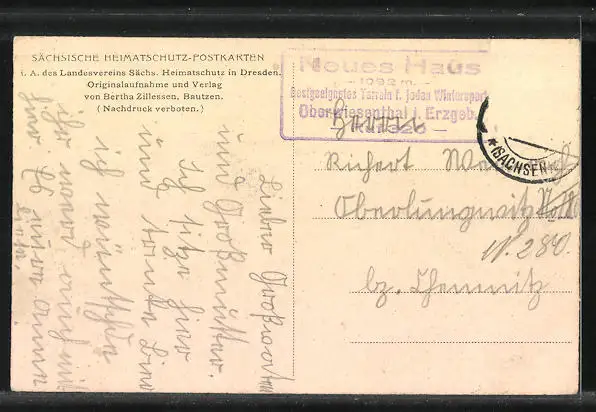 SÄCHSISCHE HEIMATSCHUTZ-POSTKARTEN
i. A. des Landesvereins Sächs. Heimatschutz in Dresden.
Originalaufnahme und Verlag
von Bertha Zillessen, Bautzen.
(Nachdruck verboten.)
Neues Haus
1083 m.
Bestgeeignetes Terrain f. jeden Wintersport
Oberwiesenthal i. Erzgeb.
(SACHSEN)
Richert
Oberlungwitz
N. 280.
bz. Chemnitz
Lieber Großvater
und Großmutter.
Ich sitze hier
und trinke Bier
ich wünschte
ihr wäret auch mit
hier